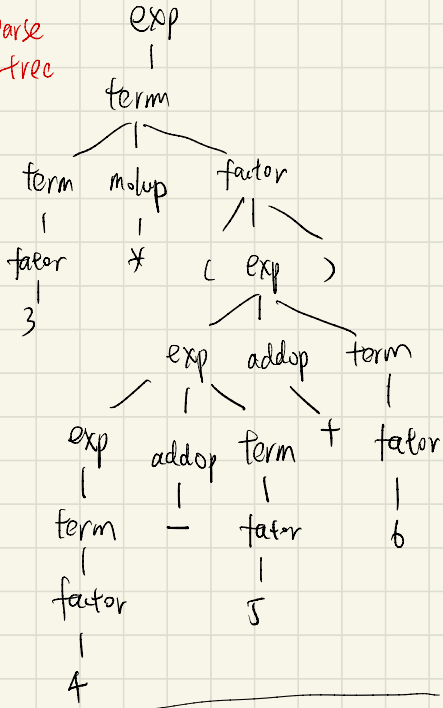 exp
arse
tree
term
term molup factor
fator * ( exp )
3
exp addop term
exp addop term + fator
term - fator 6
factor 5
4